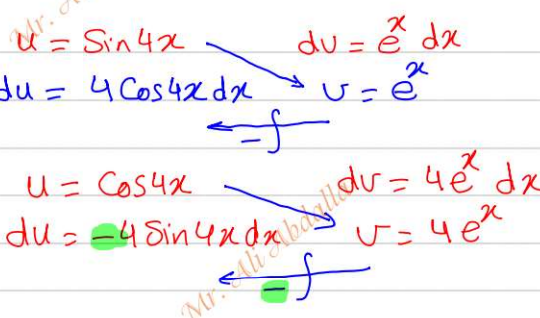 u = Sin4x dv = eˣ dx
du = 4Cos4x dx v = eˣ
-∫
u = Cos4x dv = 4eˣ dx
du = -4Sin4x dx v = 4eˣ
-∫
Mr. Ali Abdalla